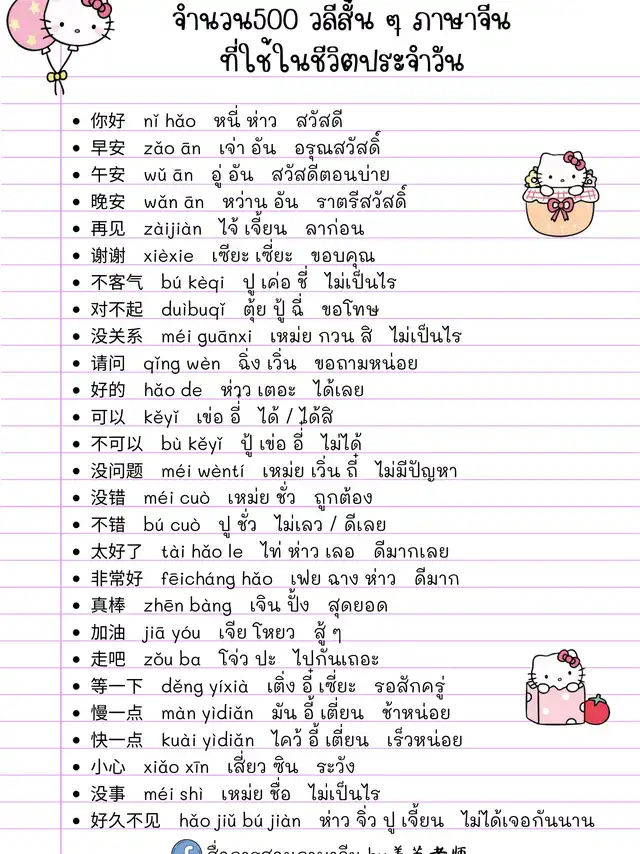 จำนวน500 วลีสั้น ๆ ภาษาจีน
ที่ใช้ในชีวิตประจำวัน
• 你好 nǐ hǎo หนี่ ห่าว สวัสดี
• 早安 zǎo ān เจ่า อัน อรุณสวัสดิ์
• 午安 wǔ ān อู่ อัน สวัสดีตอนบ่าย
• 晚安 wǎn ān หว่าน อัน ราตรีสวัสดิ์
• 再见 zàijiàn ไจ้ เจี้ยน ลาก่อน
• 谢谢 xièxie เซียะ เซี่ยะ ขอบคุณ
• 不客气 bú kèqi ปู เค่อ ชี่ ไม่เป็นไร
• 对不起 duìbuqǐ ตุ้ย ปู้ ฉี่ ขอโทษ
• 没关系 méi guānxi เหม่ย กวน สิ ไม่เป็นไร
• 请问 qǐng wèn ฉิ่ง เวิ่น ขอถามหน่อย
• 好的 hǎo de ห่าว เตอะ ได้เลย
• 可以 kěyǐ เข่อ อี่ ได้ / ได้สิ
• 不可以 bù kěyǐ ปู้ เข่อ อี่ ไม่ได้
• 没问题 méi wèntí เหม่ย เวิ่น ถี๋ ไม่มีปัญหา
• 没错 méi cuò เหม่ย ชั่ว ถูกต้อง
• 不错 bú cuò ปู ชั่ว ไม่เลว / ดีเลย
• 太好了 tài hǎo le ไท่ ห่าว เลอ ดีมากเลย
• 非常好 fēicháng hǎo เฟย ฉาง ห่าว ดีมาก
• 真棒 zhēn bàng เจิน ปั้ง สุดยอด
• 加油 jiā yóu เจีย โหยว สู้ ๆ
• 走吧 zǒu ba โจ่ว ปะ ไปกันเถอะ
• 等一下 děng yíxià เติ่ง อี๋ เซี่ยะ รอสักครู่
• 慢一点 màn yìdiǎn มัน อี้ เตี่ยน ช้าหน่อย
• 快一点 kuài yìdiǎn ไคว้ อี้ เตี่ยน เร็วหน่อย
• 小心 xiǎo xīn เสี่ยว ซิน ระวัง
• 没事 méi shì เหม่ย ชื่อ ไม่เป็นไร
• 好久不见 hǎo jiǔ bú jiàn ห่าว จิ่ว ปู เจี้ยน ไม่ได้เจอกันนาน